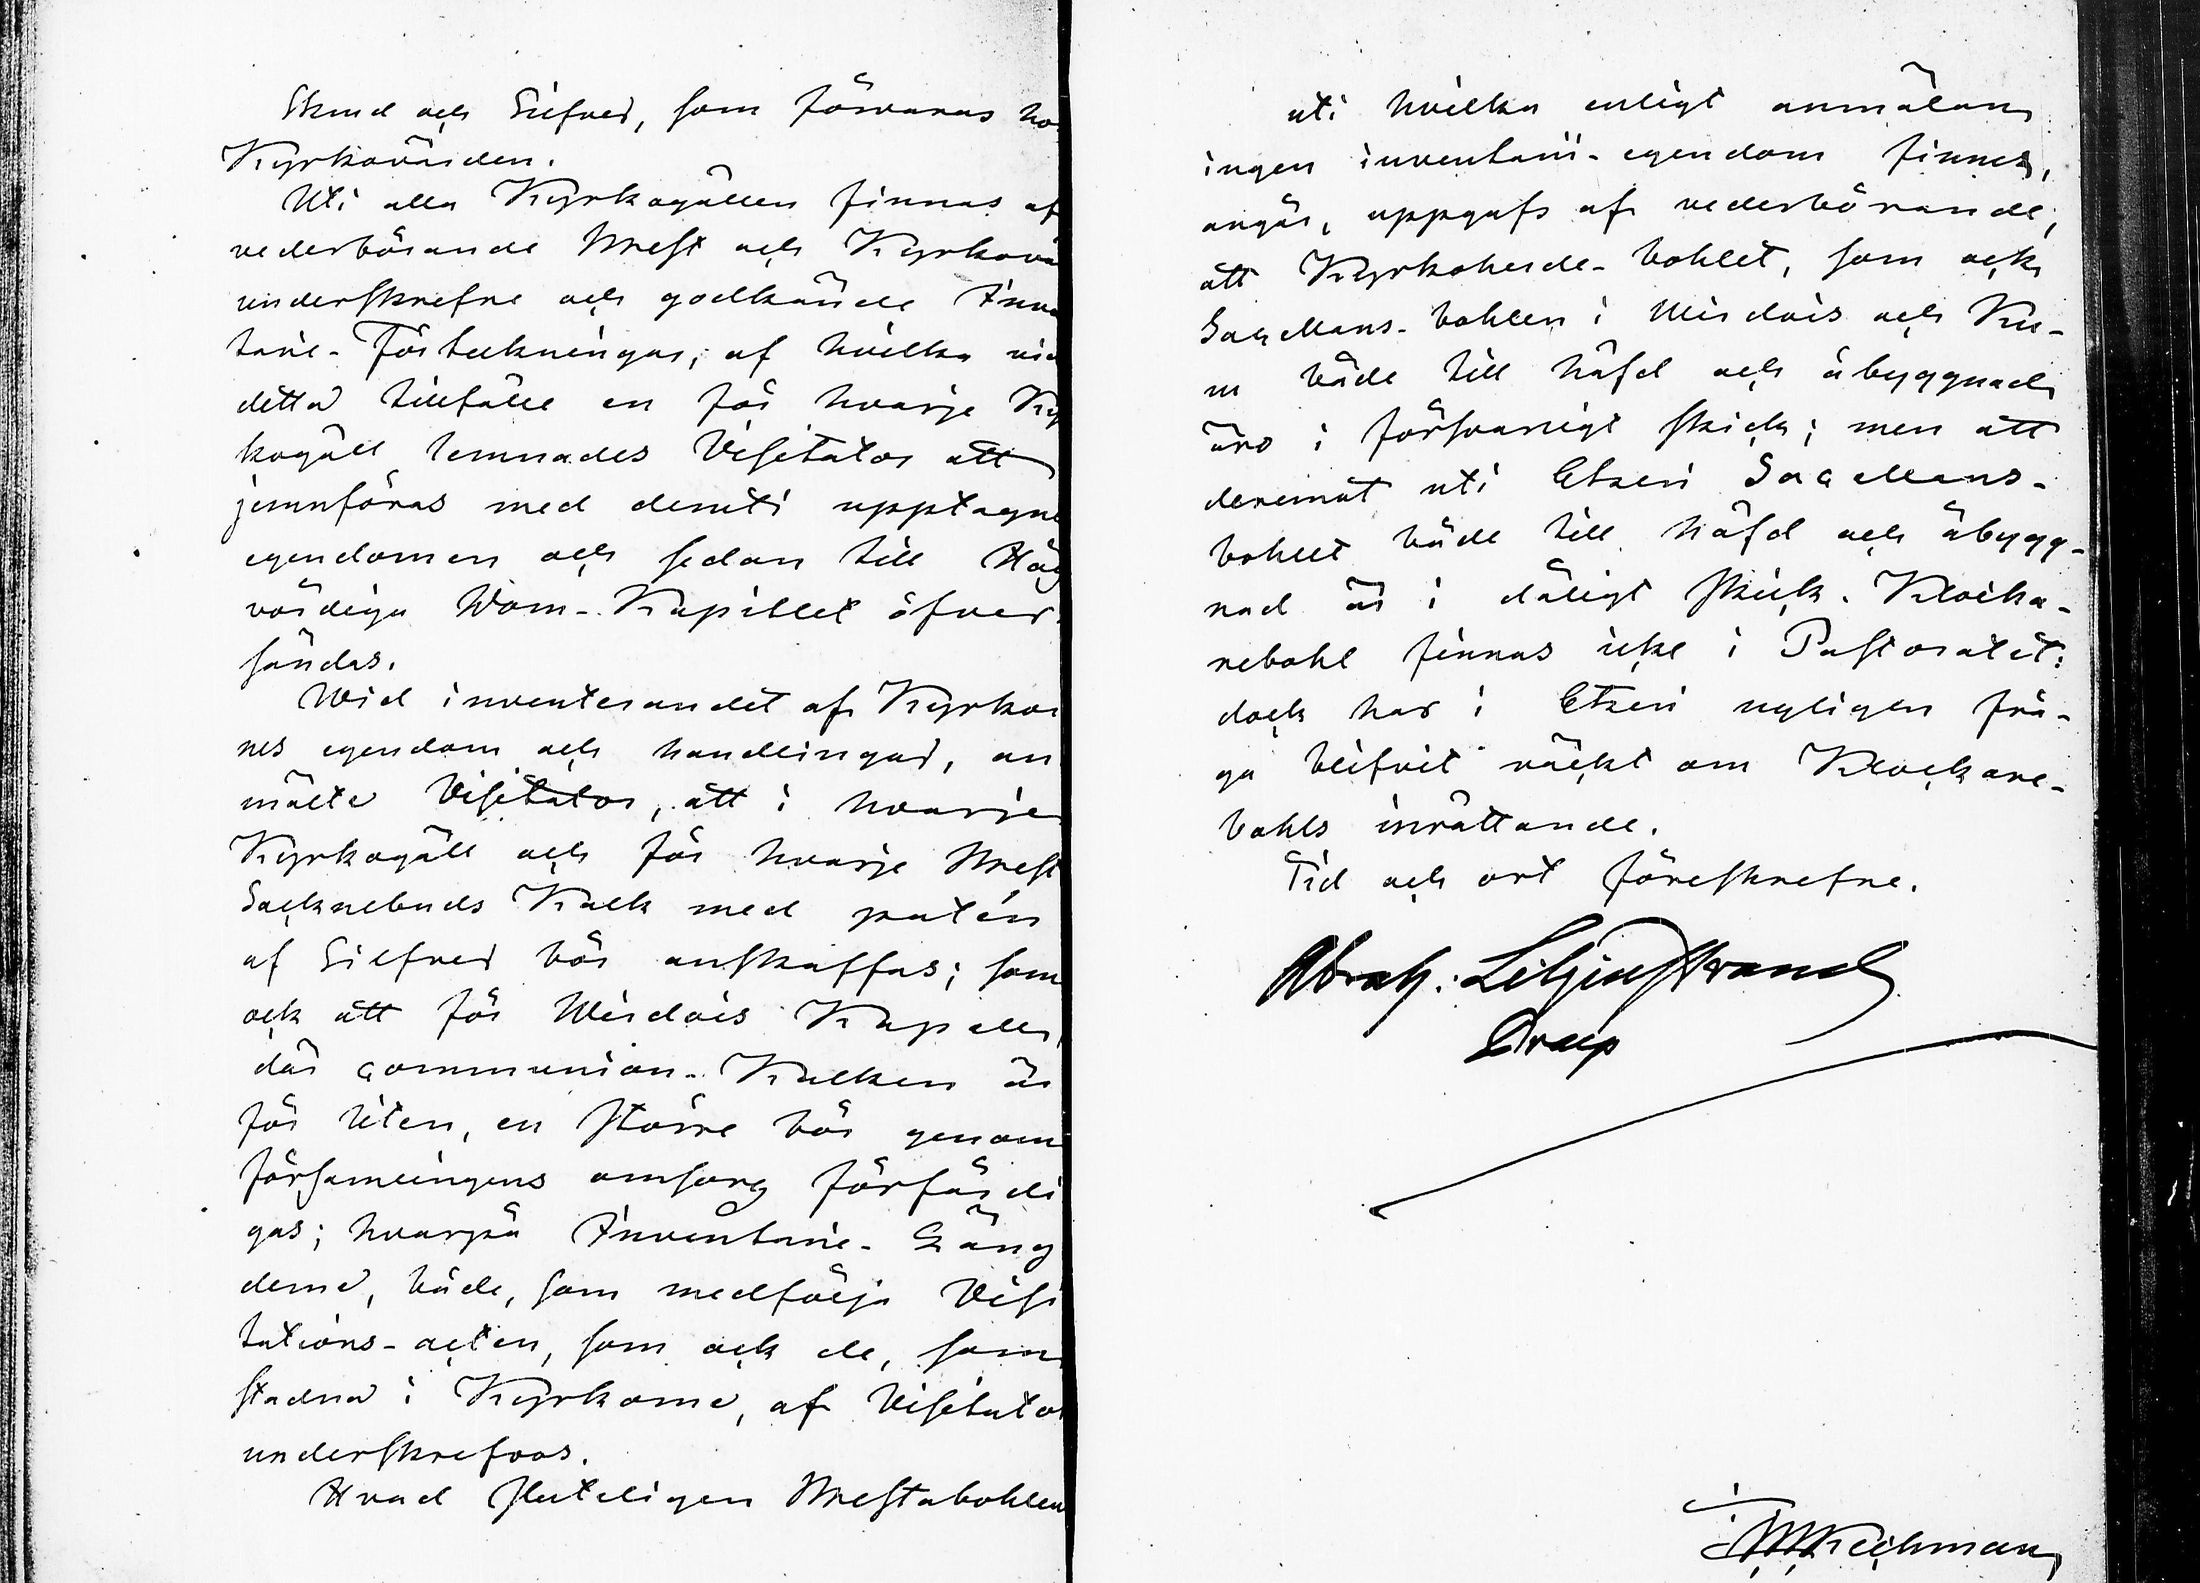 Skrud och Silfver, som förvaras ho
Kyrkovärden.
Uti alla Kyrkogällen finnas af
vederbörande Prest och Kyrkovä
underskrefne och godkände Inve
tarie-Förteckningar, af hvilka vid
detta tillfälle en för hvarje Ky
kogäll lemnades Visitator att
jemnföras med deruti upptagne
egendomen och sedan till Hög
vördiga Dom-Kapitlet öfver
sändas.
Wid inventerandet af Kyrkor
nes egendom och handlingar, an
mälte Visitator, att i hvarje
Kyrkogäll och för hvarje Prest
Sacknebuds Kalk med patén
af Silfver bör anskaffas; som
ock att för Wirdois Kapell,
där communion-Kalken är
för liten, en större bör genom
församlingens omsorg förfärdi
gas; hvarpå Inventarie-Läng
derne, både, som medfölja Visi
tations-acten, som ock de, som
stadna i Kyrkorne, af Visitator
underskrefvos.
Hvad sluteligen Prestabohlen
uti hvilka enligt anmälan
ingen inventarii-egendom finnes,
angår, uppgafs af vederbörande,
att Kyrkoherde-bohlet, som ock
Sacellans-bohlen i Wirdois och Ku-
ru både till häfd och åbyggnad
äro i försvarligt skick; men att
deremot uti Etseri Sacellans-
bohlet både till häfd och åbygg-
nad är i dåligt skick. Klocka-
rebohl finnas icke i Pastoratet:
dock har i Etseri nyligen frå-
ga blifvit väckt om Klockare-
bohls inrättande.
Tid och ort föreskrefne.
Abrah. Liljenstrand